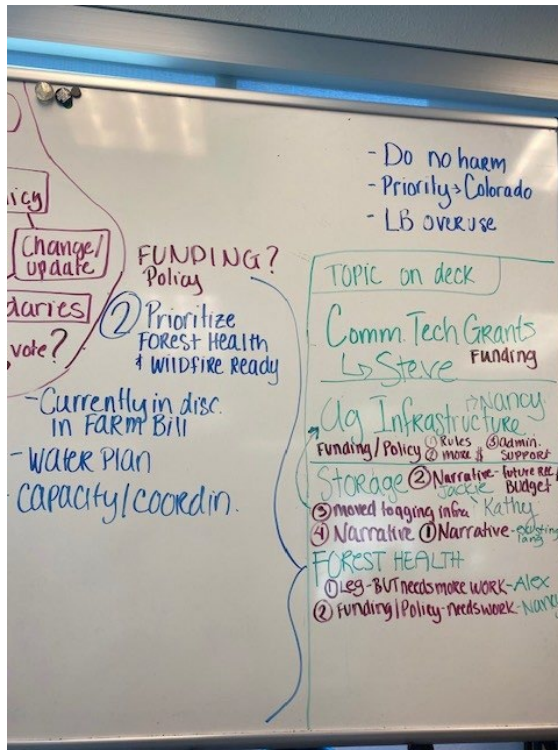 icy
Change/
update
daries
vote?
FUNDING?
Policy
② Prioritize
FOREST HEALTH
& WILDFIRE READY
- Currently in disc.
in FARM Bill
- WATER PLAN
- CAPACITY/COORDIN.
- Do no harm
- Priority → Colorado
- LB overuse
TOPIC on deck
Comm. Tech Grants
↳ Steve Funding
Ag Infrastructure → Nancy
Funding/Policy ① Rules ③ admin.
② more $ SUPPORT
Storage ② Narrative - future REC/
Jackie Budget
③ moved to ag infra Kathy
④ Narrative ① Narrative - existing
lang
FOREST HEALTH
① Leg - BUT needs more work - Alex
② Funding/Policy - needs work - Nanc